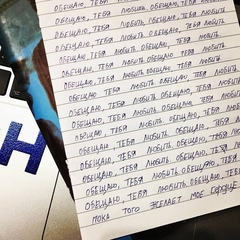 ОБЕЩАЮ, ТЕБЯ ЛЮБИТЬ. ОБЕЩАЮ, ТЕБЯ ЛЮБИТЬ
ОБЕЩАЮ, ТЕБЯ ЛЮБИТЬ. ОБЕЩАЮ, ТЕБЯ ЛЮБИТЬ
ОБЕЩАЮ, ТЕБЯ ЛЮБИТЬ. ОБЕЩАЮ, ТЕБЯ ЛЮБИТЬ
ОБЕЩАЮ, ТЕБЯ ЛЮБИТЬ. ОБЕЩАЮ, ТЕБЯ ЛЮБИТЬ
ОБЕЩАЮ, ТЕБЯ ЛЮБИТЬ. ОБЕЩАЮ, ТЕБЯ ЛЮБИТЬ
ОБЕЩАЮ, ТЕБЯ ЛЮБИТЬ. ОБЕЩАЮ, ТЕБЯ ЛЮБИТЬ
ОБЕЩАЮ, ТЕБЯ ЛЮБИТЬ. ОБЕЩАЮ, ТЕБЯ ЛЮБИТЬ
ОБЕЩАЮ, ТЕБЯ ЛЮБИТЬ. ОБЕЩАЮ, ТЕБЯ ЛЮБИТЬ
ОБЕЩАЮ, ТЕБЯ ЛЮБИТЬ. ОБЕЩАЮ, ТЕБЯ ЛЮБИТЬ
ОБЕЩАЮ, ТЕБЯ ЛЮБИТЬ. ОБЕЩАЮ, ТЕБЯ ЛЮБИТЬ
ОБЕЩАЮ, ТЕБЯ ЛЮБИТЬ. ОБЕЩАЮ, ТЕБЯ ЛЮБИТЬ
ОБЕЩАЮ, ТЕБЯ ЛЮБИТЬ. ОБЕЩАЮ, ТЕБЯ
ОБЕЩАЮ, ТЕБЯ ЛЮБИТЬ. ОБЕЩАЮ, ТЕБЯ
ОБЕЩАЮ, ТЕБЯ ЛЮБИТЬ. ОБЕЩАЮ, ТЕБЯ
ОБЕЩАЮ, ТЕБЯ ЛЮБИТЬ. ОБЕЩАЮ, ТЕБЯ
ПОКА ТОГО ЖЕЛАЕТ МОЕ СЕРДЦЕ
H